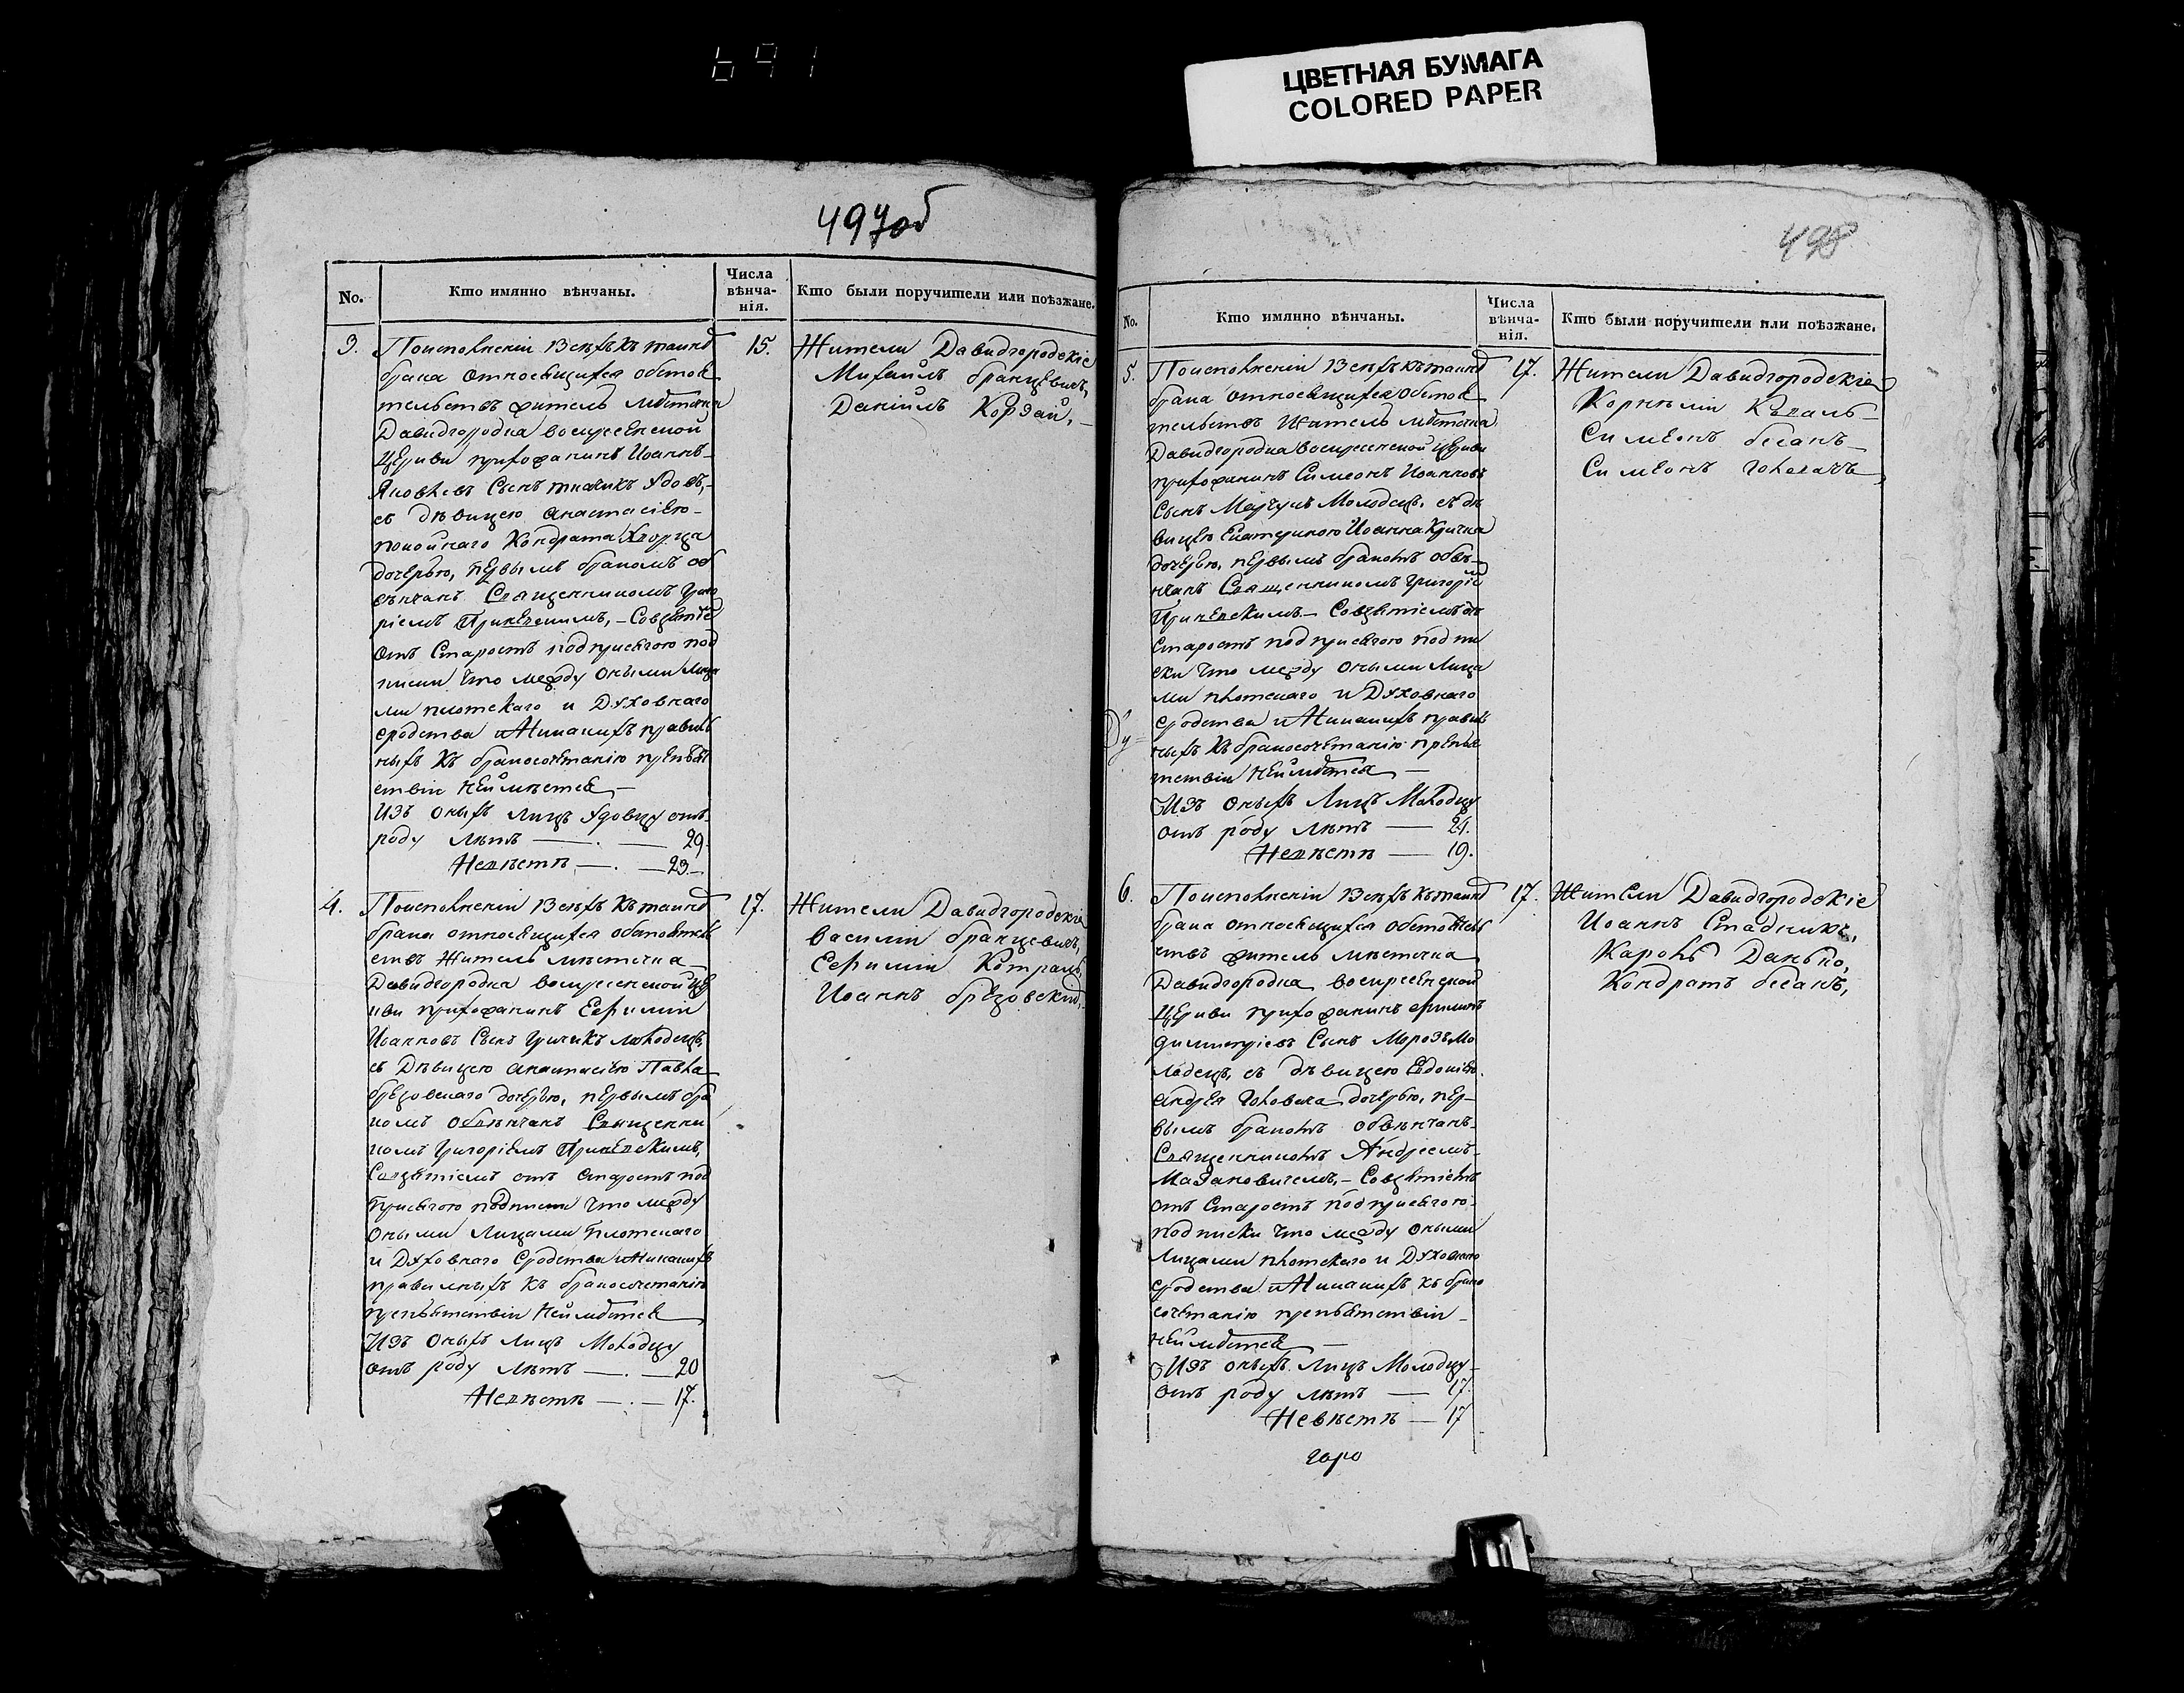 691
ЦВЕТНАЯ БУМАГА
COLORED PAPER
No.
Кто имянно вѣнчаны.
Числа
вѣнча-
нія.
Кто были поручители или поѣзжане.
3.
По исполненіи всѣхъ къ таинс
брака относящихся обстоя
тельствъ житель мѣстечка
Давидгородка воскресенской
церкви прихожанинъ Иоаннъ
Яковлевъ Сынъ удовъ,
съ дѣвицею Анастасіею
покойнаго Кондрата
дочерью, первымъ бракомъ об
вѣнчанъ Священникомъ Григо
ріемъ
отъ Старостъ подприсягою под
писки что между оными Лица
ми плотскаго и Духовнаго
сродства и Никакихъ правиль
ныхъ къ бракосочетанію препят
ствіи Неимѣется
Изъ оныхъ лицъ Удовцу отъ
роду лѣтъ — 29.
Невѣстѣ — 23.
15.
Жители Давидгородскіе
Михаилъ бранцевичъ,
Даніилъ Корзай,
4.
По исполненіи всѣхъ къ таинс
брака относящихся обстоятель
ствъ Житель мѣстечка
Давидгородка воскресенской цер
кви прихожанинъ Ефимій
Иоанновъ Сынъ молодецъ,
съ Дѣвицею Анастасіею Павла
брезовскаго дочерью, первымъ бра
комъ обвѣнчанъ Священни
комъ Григоріемъ
отъ Старостъ под
присягою подписки что между
оными Лицами плотскаго
и Духовнаго Сродства и Никакихъ
правилныхъ къ бракосочетанію
препятствіи Неимѣется
Изъ оныхъ лицъ Молодцу
отъ роду лѣтъ — 20
Невѣстѣ — 17.
17.
Жители Давидгородскіе
Василіи бранцевичъ,
Ефимій
Иоаннъ брезовскій,
498
No.
Кто имянно вѣнчаны.
Числа
вѣнча-
нія.
Кто были поручители или поѣзжане.
5.
По исполненіи всѣхъ къ таинс
брака относящихся обстоя
тельствъ Житель мѣстечка
Давидгородка воскресенской церкви
прихожанинъ Симеонъ Иоанновъ
Сынъ Молодецъ, съ дѣ
вицею Екатериною Иоанна Кричка
дочерью, первымъ бракомъ обвѣ
нчанъ Священникомъ Григоріе
Старостъ подприсягою подпи
ски что между оными Лица
ми плотскаго и Духовнаго
сродства и Никакихъ правиль
ныхъ къ бракосочетанію препя
тствіи Неимѣется
Изъ оныхъ Лицъ Молодцу
отъ роду лѣтъ — 24.
Невѣстѣ — 19.
17.
Жители Давидгородскіе
Корниліи
Симеонъ
Симеонъ
6.
По исполненіи всѣхъ къ таинс
брака относящихся обстоятель
ствъ житель мѣстечка
Давидгородка воскресенской
церкви прихожанинъ
Димитріевъ Сынъ Морозъ Мо
лодецъ, съ дѣвицею Евдокіею
Андрея дочерью, пер
вымъ бракомъ обвѣнчанъ
Священникомъ Андреемъ
отъ Старостъ подприсягою
подписки что между оными
Лицами плотскаго и Духовнаго
сродства и Никакихъ къ брако
сочетанію препятствіи
неимѣется
Изъ оныхъ Лицъ Молодцу
отъ роду лѣтъ — 17.
Невѣстѣ — 17
17.
Жители Давидгородскіе
Иоаннъ Стадникъ,
Карпъ Данько,
Кондратъ